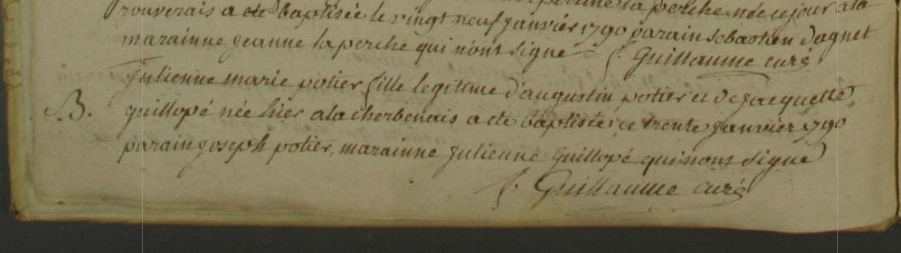 rouverais a ete baptisée le vingt neuf janvier 1790 parain sebastien dagnet
marainne jeanne laperche qui n'ont signe
f. Guillaume curé
Julienne marie potier fille legitime d'augustin potier et de jacquette
B.
guillopé née hier a la cherbenais a ete baptisée ce trente janvier 1790
parain joseph potier, marainne Julienne Guillopé qui n'ont signe
f. Guillaume curé